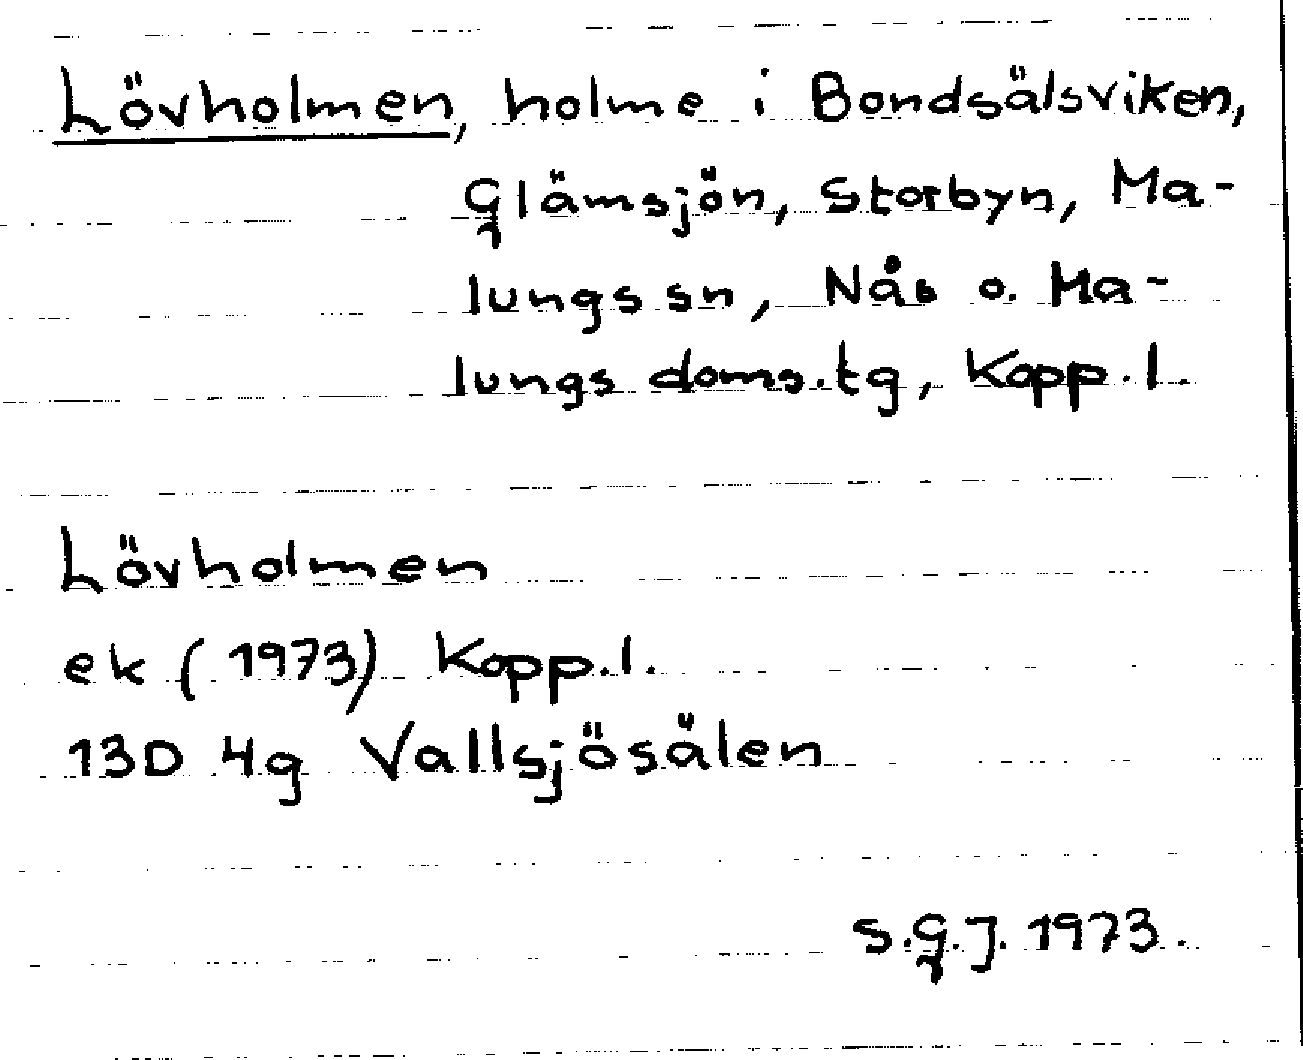 Lövholmen, holme i Bondsälsviken,
Glämsjön, Storbyn, Ma-
lungs sn, Nås o. Ma-
lungs doms.tg, Kopp.l.
Lövholmen
ek (1973) Kopp.l.
13D 4g Vallsjösälen
S.G.J. 1973.